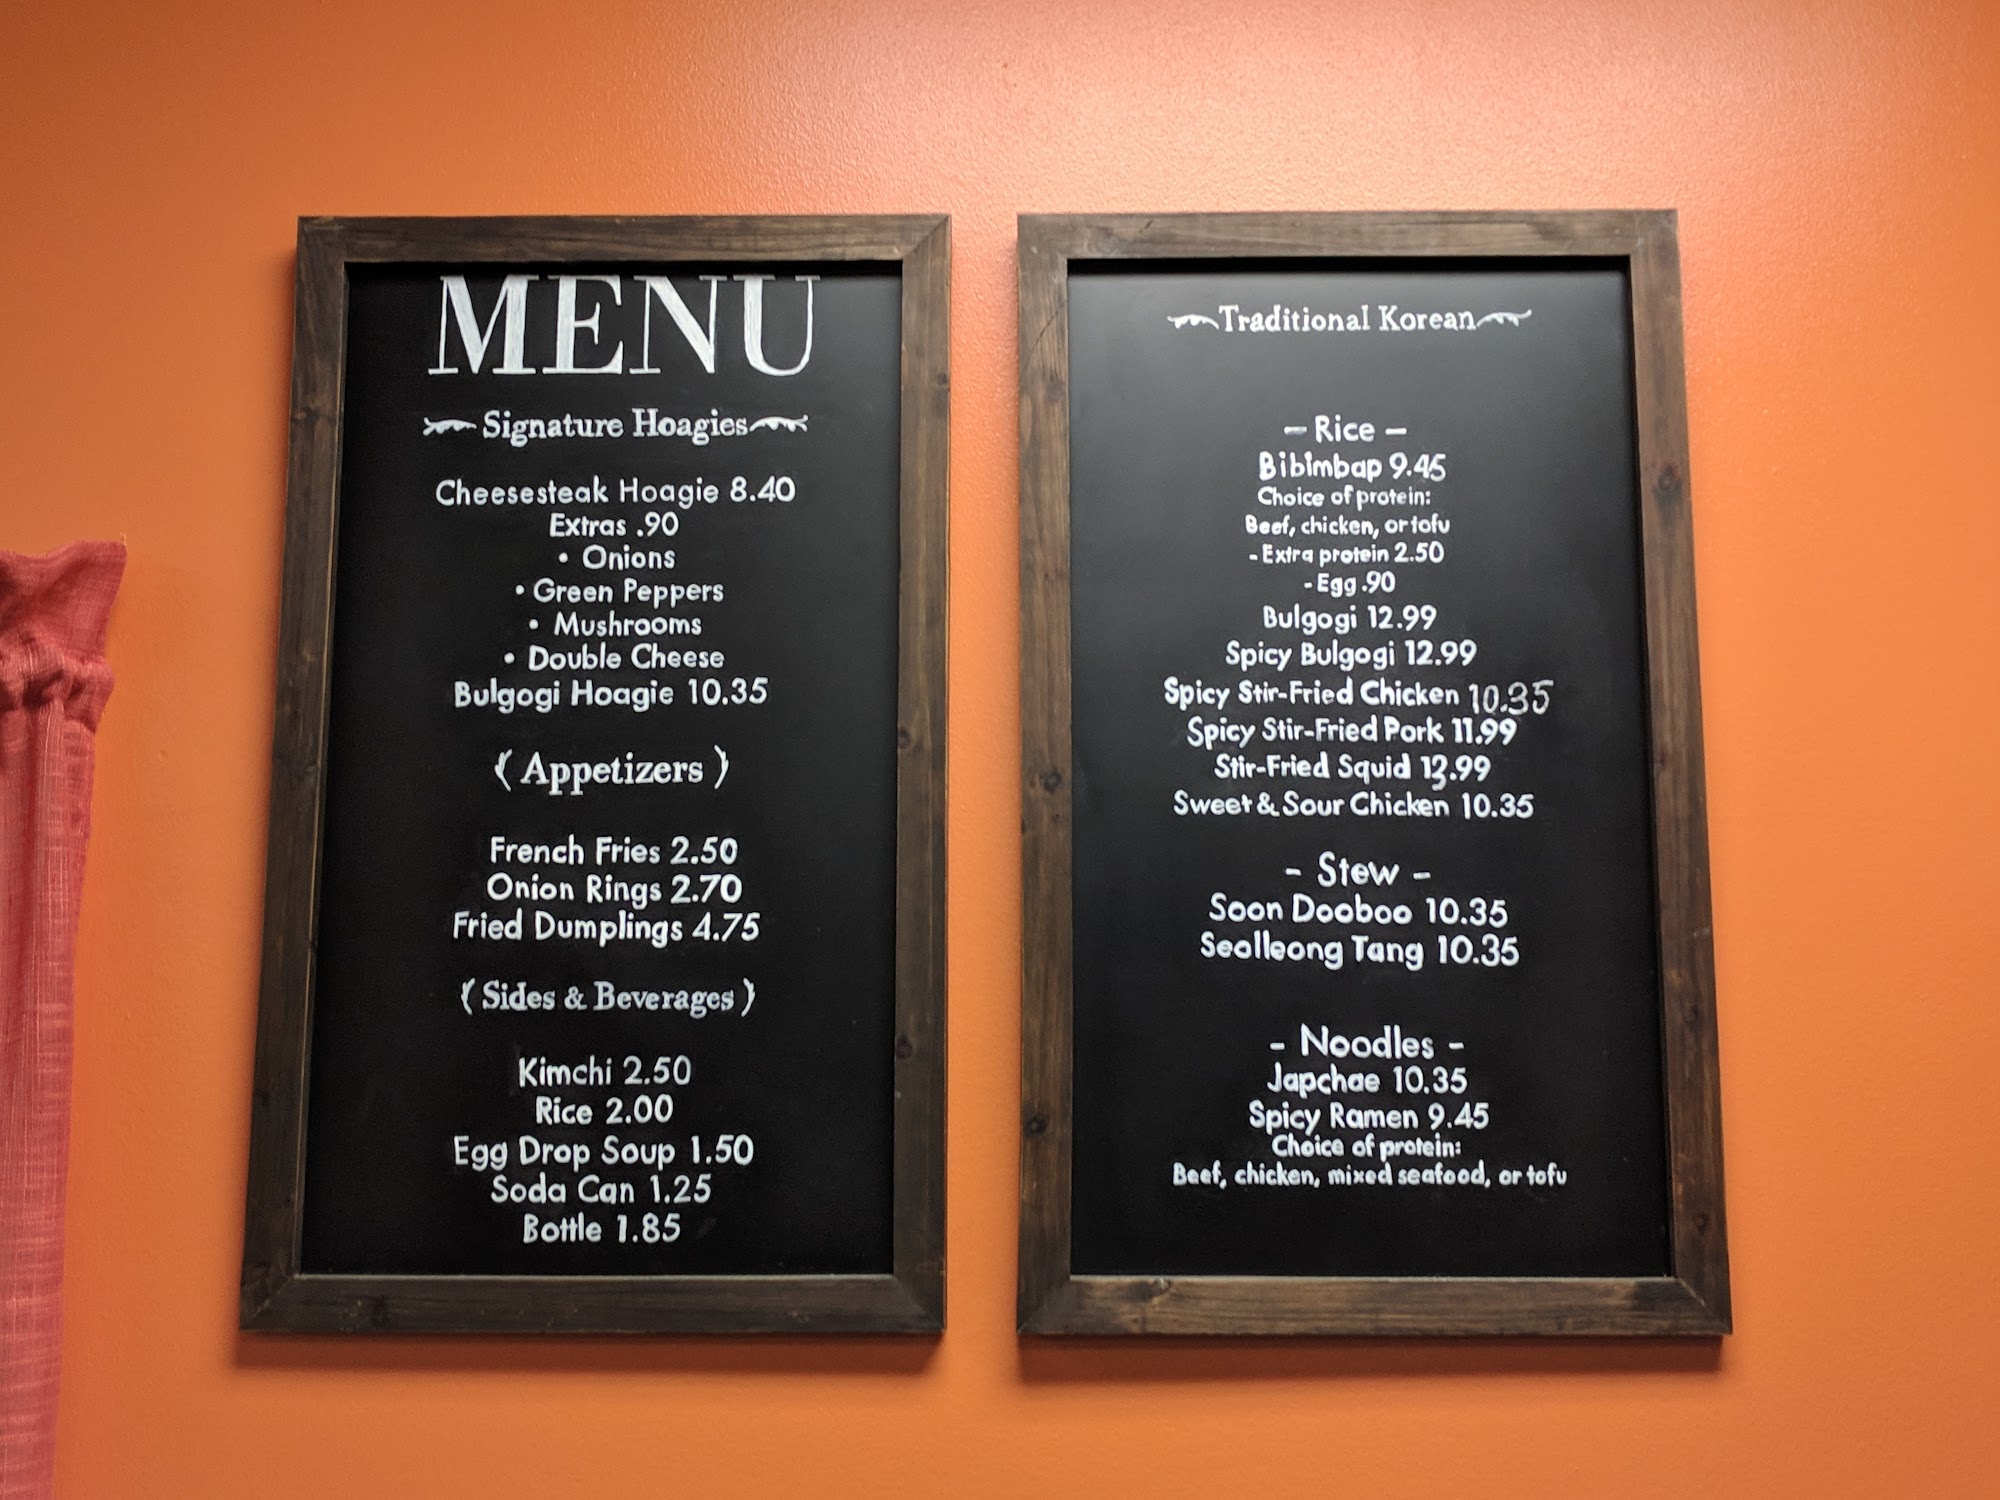 MENU
Signature Hoagies
Cheesesteak Hoagie 8.40
Extras .90
• Onions
• Green Peppers
• Mushrooms
• Double Cheese
Bulgogi Hoagie 10.35
( Appetizers )
French Fries 2.50
Onion Rings 2.70
Fried Dumplings 4.75
( Sides & Beverages )
Kimchi 2.50
Rice 2.00
Egg Drop Soup 1.50
Soda Can 1.25
Bottle 1.85
Traditional Korean
- Rice -
Bibimbap 9.45
Choice of protein:
Beef, chicken, or tofu
- Extra protein 2.50
- Egg .90
Bulgogi 12.99
Spicy Bulgogi 12.99
Spicy Stir-Fried Chicken 10.35
Spicy Stir-Fried Pork 11.99
Stir-Fried Squid 13.99
Sweet & Sour Chicken 10.35
- Stew -
Soon Dooboo 10.35
Seolleong Tang 10.35
- Noodles -
Japchae 10.35
Spicy Ramen 9.45
Choice of protein:
Beef, chicken, mixed seafood, or tofu